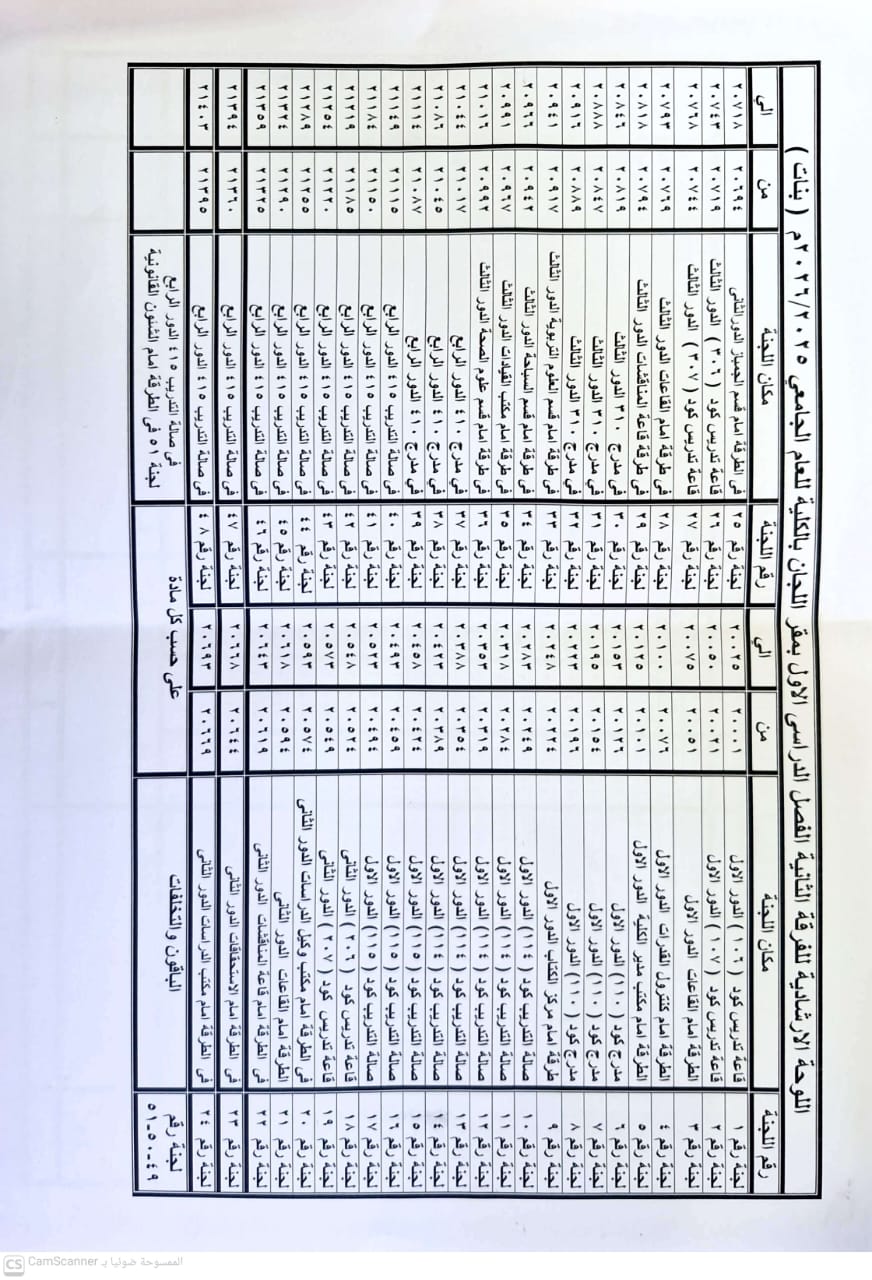 اللوحة الارشادية للفرقة الثانية الفصل الدراسى الاول بمقر اللجان بالكلية للعام الجامعي ٢٠٢٦/٢٠٢٥م ( بنات )
رقم اللجنة مكان اللجنة من الي رقم اللجنة مكان اللجنة من الي
لجنة رقم ١ قاعة تدريس كود ( ١٠٦ ) الدور الاول ٢٠٠٠١ ٢٠٠٢٥ لجنة رقم ٢٥ فى الطرقة امام قسم الجمباز الدور الثانى ٢٠٦٩٤ ٢٠٧١٨
لجنة رقم ٢ قاعة تدريس كود ( ١٠٧ ) الدور الاول ٢٠٠٢١ ٢٠٠٥٠ لجنة رقم ٢٦ قاعة تدريس كود ( ٣٠٦ ) الدور الثالث ٢٠٧١٩ ٢٠٧٤٣
لجنة رقم ٣ الطرقة امام القاعات الدور الاول ٢٠٠٥١ ٢٠٠٧٥ لجنة رقم ٢٧ قاعة تدريس كود ( ٣٠٧ ) الدور الثالث ٢٠٧٤٤ ٢٠٧٦٨
لجنة رقم ٤ الطرقة امام كنترول القدرات الدور الاول ٢٠٠٧٦ ٢٠١٠٠ لجنة رقم ٢٨ فى طرقة امام القاعات الدور الثالث ٢٠٧٦٩ ٢٠٧٩٣
لجنة رقم ٥ الطرقة امام مكتب مدير الكلية الدور الاول ٢٠١٠١ ٢٠١٢٥ لجنة رقم ٢٩ فى طرقة قاعة المناقشات الدور الثالث ٢٠٧٩٤ ٢٠٨١٨
لجنة رقم ٦ مدرج كود ( ١١٠ ) الدور الاول ٢٠١٢٦ ٢٠١٥٣ لجنة رقم ٣٠ في مدرج ٣١٠ الدور الثالث ٢٠٨١٩ ٢٠٨٤٦
لجنة رقم ٧ مدرج كود ( ١١٠ ) الدور الاول ٢٠١٥٤ ٢٠١٩٥ لجنة رقم ٣١ في مدرج ٣١٠ الدور الثالث ٢٠٨٤٧ ٢٠٨٨٨
لجنة رقم ٨ مدرج كود ( ١١٠ ) الدور الاول ٢٠١٩٦ ٢٠٢٢٣ لجنة رقم ٣٢ في مدرج ٣١٠ الدور الثالث ٢٠٨٨٩ ٢٠٩١٦
لجنة رقم ٩ طرقة امام مركز الكتاب الدور الاول ٢٠٢٢٤ ٢٠٢٤٨ لجنة رقم ٣٣ فى طرقة امام قسم العلوم التربوية الدور الثالث ٢٠٩١٧ ٢٠٩٤١
لجنة رقم ١٠ صالة التدريب كود ( ١١٤ ) الدور الاول ٢٠٢٤٩ ٢٠٢٨٣ لجنة رقم ٣٤ فى طرقة امام قسم السباحة الدور الثالث ٢٠٩٤٢ ٢٠٩٦٦
لجنة رقم ١١ صالة التدريب كود ( ١١٤ ) الدور الاول ٢٠٢٨٤ ٢٠٣١٨ لجنة رقم ٣٥ فى طرقة امام مكتب القيادات الدور الثالث ٢٠٩٦٧ ٢٠٩٩١
لجنة رقم ١٢ صالة التدريب كود ( ١١٤ ) الدور الاول ٢٠٣١٩ ٢٠٣٥٣ لجنة رقم ٣٦ فى طرقة امام قسم علوم الصحة الدور الثالث ٢٠٩٩٢ ٢١٠١٦
لجنة رقم ١٣ صالة التدريب كود ( ١١٤ ) الدور الاول ٢٠٣٥٤ ٢٠٣٨٨ لجنة رقم ٣٧ في مدرج ٤١٠ الدور الرابع ٢١٠١٧ ٢١٠٤٤
لجنة رقم ١٤ صالة التدريب كود ( ١١٤ ) الدور الاول ٢٠٣٨٩ ٢٠٤٢٣ لجنة رقم ٣٨ في مدرج ٤١٠ الدور الرابع ٢١٠٤٥ ٢١٠٨٦
لجنة رقم ١٥ صالة التدريب كود ( ١١٥ ) الدور الاول ٢٠٤٢٤ ٢٠٤٥٨ لجنة رقم ٣٩ في مدرج ٤١٠ الدور الرابع ٢١٠٨٧ ٢١١١٤
لجنة رقم ١٦ صالة التدريب كود ( ١١٥ ) الدور الاول ٢٠٤٥٩ ٢٠٤٩٣ لجنة رقم ٤٠ فى صالة التدريب ٤١٥ الدور الرابع ٢١١١٥ ٢١١٤٩
لجنة رقم ١٧ صالة التدريب كود ( ١١٥ ) الدور الاول ٢٠٤٩٤ ٢٠٥٢٣ لجنة رقم ٤١ فى صالة التدريب ٤١٥ الدور الرابع ٢١١٥٠ ٢١١٨٤
لجنة رقم ١٨ قاعة تدريس كود ( ٢٠٦ ) الدور الثانى ٢٠٥٢٤ ٢٠٥٤٨ لجنة رقم ٤٢ فى صالة التدريب ٤١٥ الدور الرابع ٢١١٨٥ ٢١٢١٩
لجنة رقم ١٩ قاعة تدريس كود ( ٢٠٧ ) الدور الثانى ٢٠٥٤٩ ٢٠٥٧٣ لجنة رقم ٤٣ فى صالة التدريب ٤١٥ الدور الرابع ٢١٢٢٠ ٢١٢٥٤
لجنة رقم ٢٠ فى الطرقة امام مكتب وكيل الدراسات الدور الثانى ٢٠٥٧٤ ٢٠٥٩٣ لجنة رقم ٤٤ فى صالة التدريب ٤١٥ الدور الرابع ٢١٢٥٥ ٢١٢٨٩
لجنة رقم ٢١ الطرقة امام القاعات الدور الثانى ٢٠٥٩٤ ٢٠٦١٨ لجنة رقم ٤٥ فى صالة التدريب ٤١٥ الدور الرابع ٢١٢٩٠ ٢١٣٢٤
لجنة رقم ٢٢ فى الطرقة امام قاعة المناقشات الدور الثانى ٢٠٦١٩ ٢٠٦٤٣ لجنة رقم ٤٦ فى صالة التدريب ٤١٥ الدور الرابع ٢١٣٢٥ ٢١٣٥٩
لجنة رقم ٢٣ فى الطرقة امام الاستحقاقات الدور الثانى ٢٠٦٤٤ ٢٠٦٦٨ لجنة رقم ٤٧ فى صالة التدريب ٤١٥ الدور الرابع ٢١٣٦٠ ٢١٣٩٤
لجنة رقم ٢٤ فى الطرقة امام مكتب الدراسات الدور الثانى ٢٠٦٦٩ ٢٠٦٩٣ لجنة رقم ٤٨ فى صالة التدريب ٤١٥ الدور الرابع ٢١٣٩٥ ٢١٤٠٣
لجنة رقم ٤٩-٥٠-٥١ الباقون والتخلفات على حسب كل مادة فى صالة التدريب ٤١٥ الدور الرابع
لجنة ٥١ فى الطرقة امام الشئون القانونية
CS CamScanner الممسوحة ضوئيا بـ